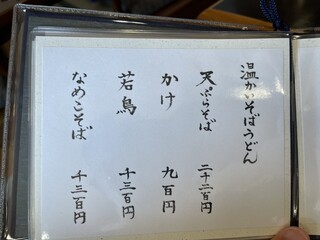 温かいそばうどん
天ぷらそば 二千二百円
かけ 九百円
若鳥 千三百円
なめこそば 千三百円